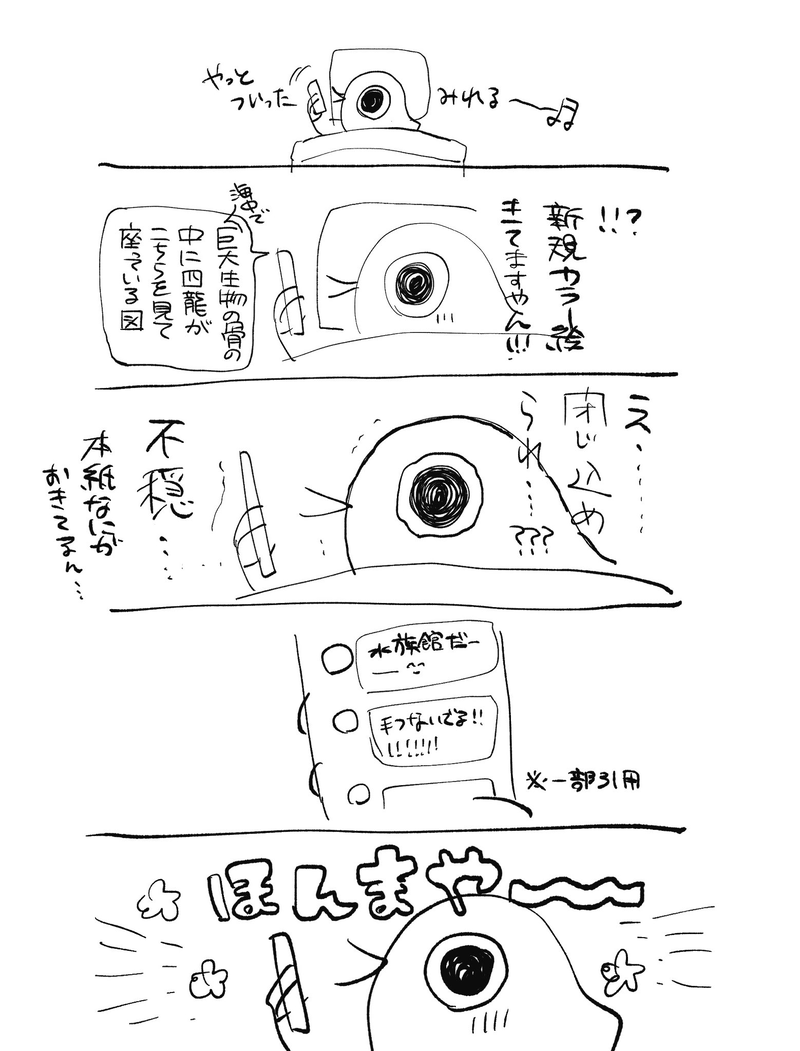 やっと
ついった
みれる〜♪
!!?
新規カラー絵
きてますやん!!!
海中で
巨大生物の骨の
中に四龍が
こちらを見て
座っている図
え、……
閉じ込め
られ……???
不穏……
本紙なにが
おきてるん……
水族館だー
手つないでる!!
!!!!!!!
※一部引用
ほんまや〜〜